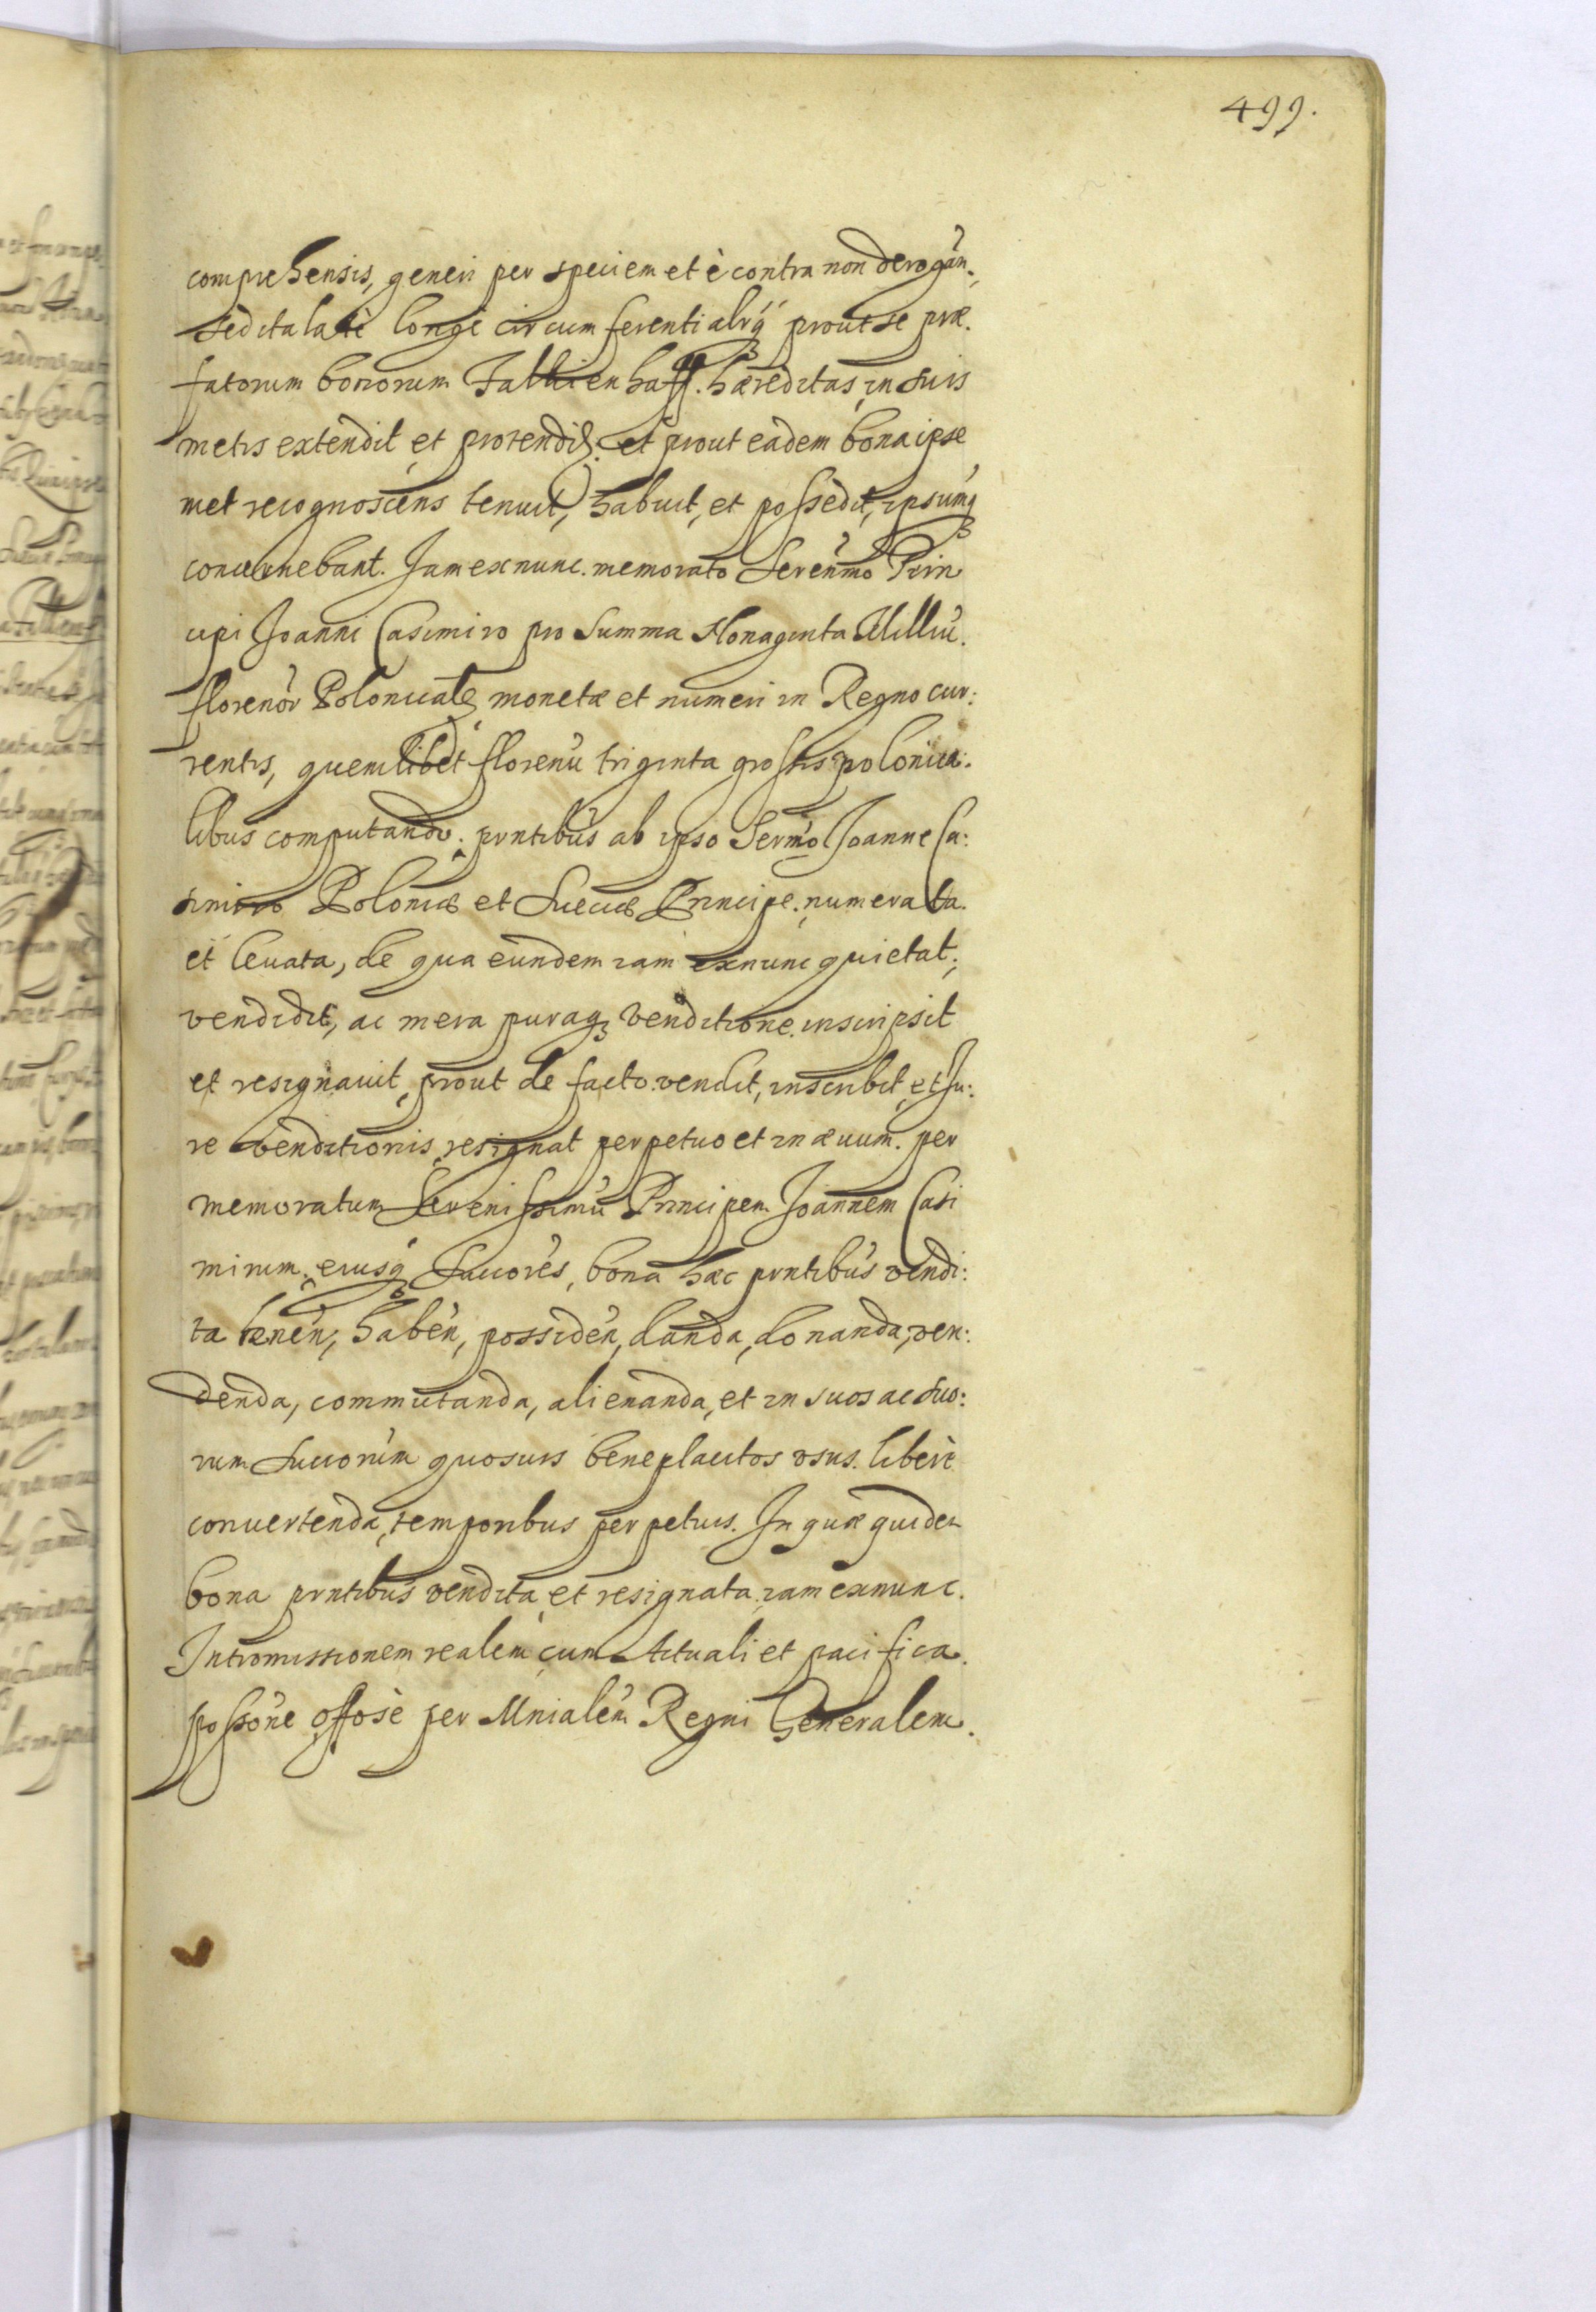 499.
comprehensis, generi per speciem et è contra non derogan̄.
sed ita latè longè circumferentialr̄q́ prout se præ.
fatorum bonorum Falkienhaff. hæreditas, in suis
metis extendit, et protendit. et prout eadem bona ipse
met recognoscens tenuit, habuit, et possedit, ipsumq́
concernebant. Jam ex nunc. memorato Seren̄mo Prin
cipi Joanni Casimiro pro Summa Nonaginta Milliū.
florenor̄ Polonicaleꝫ monetæ et numeri in Regno cur:
rentis, quemlibet florenū triginta grossis polonica:
libus computando. pn̄tibus ab ipso Serm̄o Joanne Ca:
simiro Poloniæ et Sueciæ Principe. numerata.
et leuata, de qua eundem iam exnunc quietat;
vendidit, ac mera puraqꝫ venditione. inscripsit
et resignauit, prout de facto. vendit, inscribit, et Ju:
re venditionis, resignat perpetuo et in æuum. per
memoratum Serenissimū Principem Joannem Casi
mirum. eiusq́ Succores, bona hæc pn̄tibus vendi:
ta tenen̄, haben̄, possiden̄, danda, donanda, ven:
denda, commutanda, alienanda, et in suos ac suo:
rum Succorum quosuis beneplacitos vsus. liberè
conuertenda, temporibus perpetuis. In quæ quidem
bona pn̄tibus vendita, et resignata. iam exnunc.
Intromissionem realem cum Actuali et pacifica.
possōne offosè per Mnialem Regni Generalem.